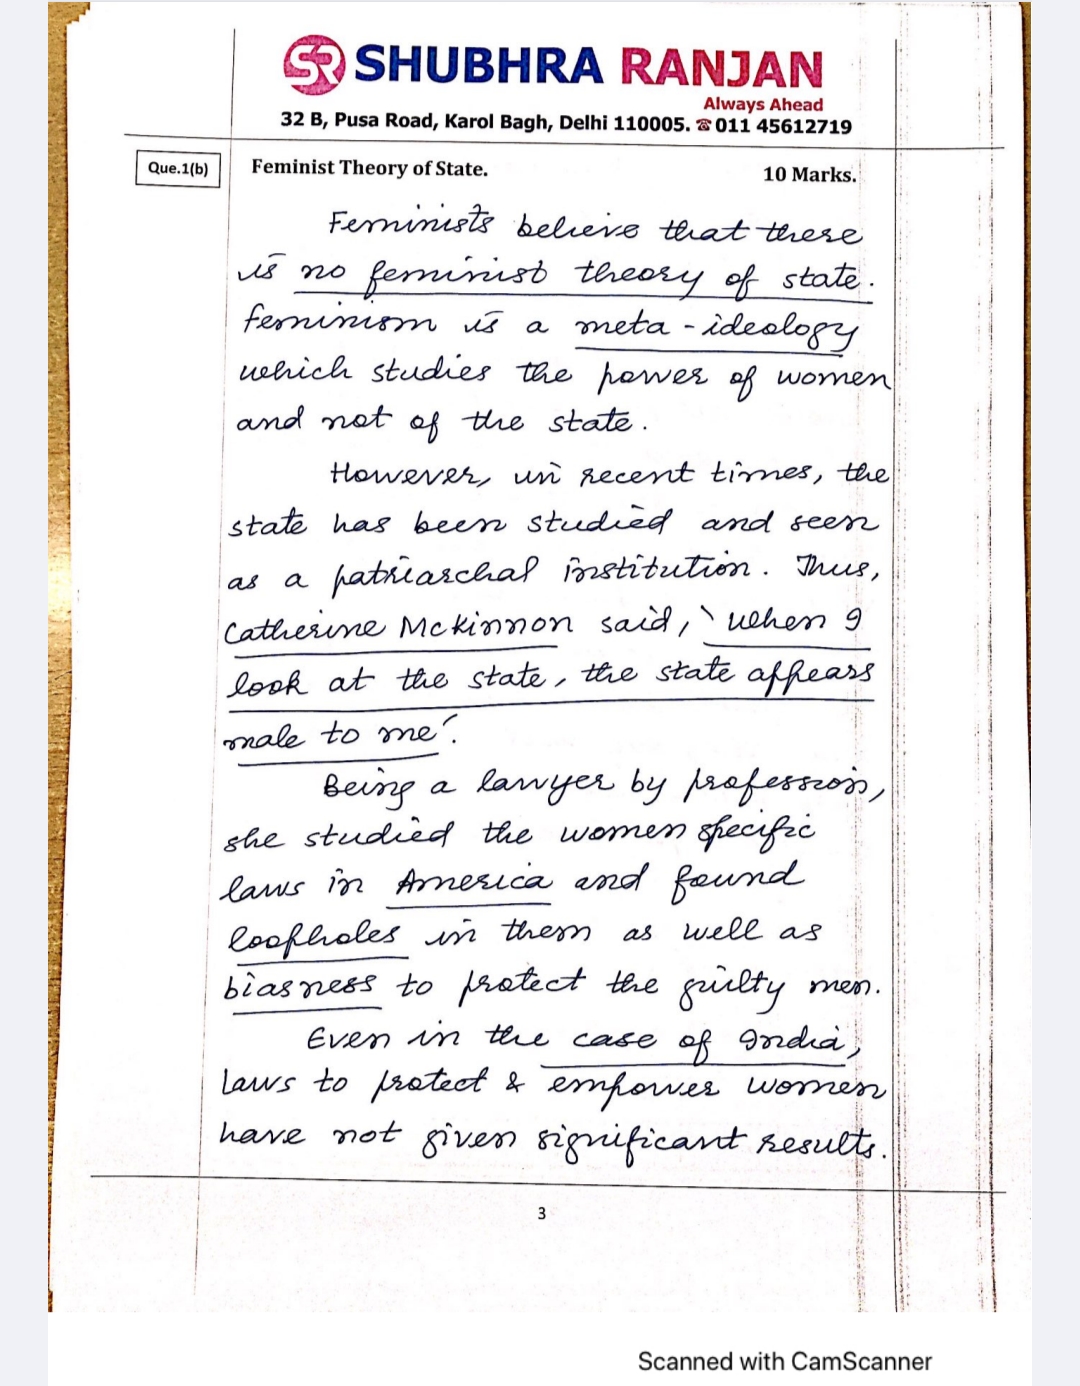 SR SHUBHRA RANJAN
Always Ahead
32 B, Pusa Road, Karol Bagh, Delhi 110005. ☎ 011 45612719
Que.1(b) Feminist Theory of State. 10 Marks.
Feminists believe that there
is no feminist theory of state.
feminism is a meta-ideology
which studies the power of women
and not of the state.
However, in recent times, the
state has been studied and seen
as a patriarchal institution. Thus,
Catherine Mckinnon said, 'when I
look at the state, the state appears
male to me'.
Being a lawyer by profession,
she studied the women specific
laws in America and found
loopholes in them as well as
biasness to protect the guilty men.
Even in the case of India,
laws to protect & empower women
have not given significant results.
3
Scanned with CamScanner